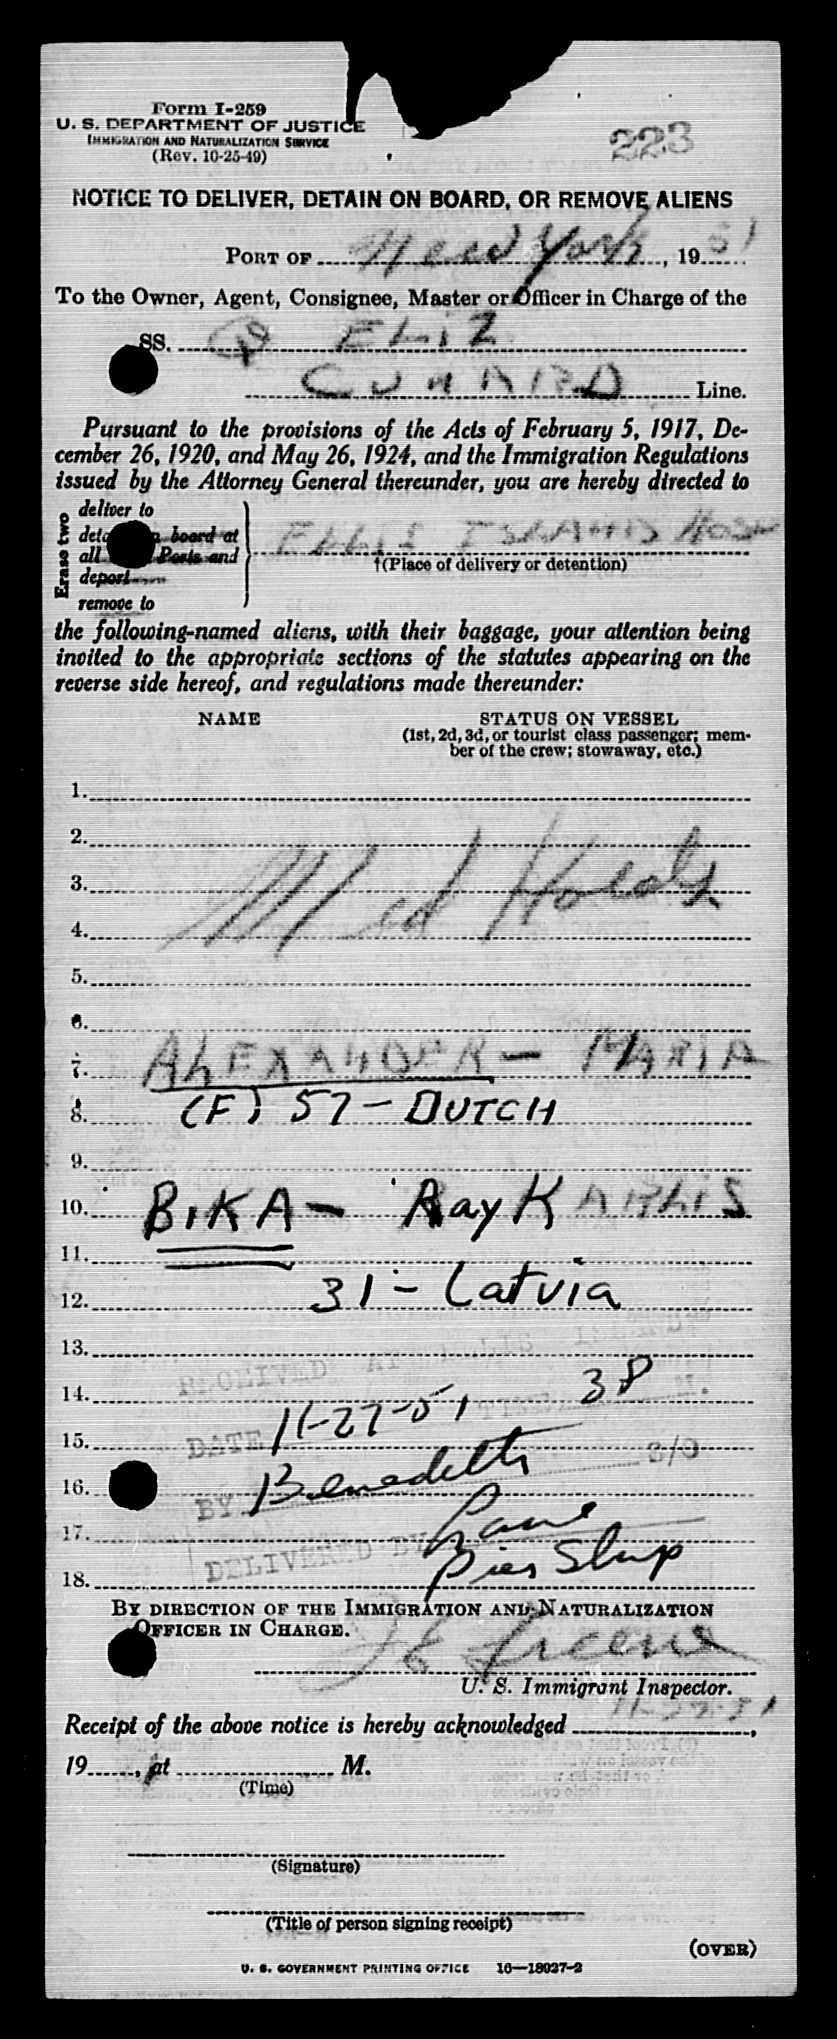 Form I-259
U. S. DEPARTMENT OF JUSTICE
IMMIGRATION AND NATURALIZATION SERVICE
(Rev. 10-25-49)
223
NOTICE TO DELIVER, DETAIN ON BOARD, OR REMOVE ALIENS
PORT OF New York, 1951
To the Owner, Agent, Consignee, Master or Officer in Charge of the
SS. Q ELIZ
CUNARD Line.
Pursuant to the provisions of the Acts of February 5, 1917, De-
cember 26, 1920, and May 26, 1924, and the Immigration Regulations
issued by the Attorney General thereunder, you are hereby directed to
Erase two
deliver to
board at
all Ports and
deport
remove to
ELLIS ISLAND Hos
†(Place of delivery or detention)
the following-named aliens, with their baggage, your attention being
invited to the appropriate sections of the statutes appearing on the
reverse side hereof, and regulations made thereunder:
NAME STATUS ON VESSEL
(1st, 2d, 3d, or tourist class passenger; mem-
ber of the crew; stowaway, etc.)
1.
2.
3. Med Holds
4.
5.
6.
7. ALEXANDER - MARIA
8. (F) 57 - DUTCH
9.
10. BIKA - Ray K
11.
12. 31 - Latvia
13.
RECEIVED AT ELLIS ISLAND
14. 38
DATE 11-27-51 TIME M.
15.
16. BY Benedetti S/O
17.
DELIVERED BY Lane
18. Pier Slup
BY DIRECTION OF THE IMMIGRATION AND NATURALIZATION
OFFICER IN CHARGE.
Greene
U. S. Immigrant Inspector.
Receipt of the above notice is hereby acknowledged 11-27-51,
19, at M.
(Time)
(Signature)
(Title of person signing receipt)
(OVER)
U. S. GOVERNMENT PRINTING OFFICE 16—18027-2